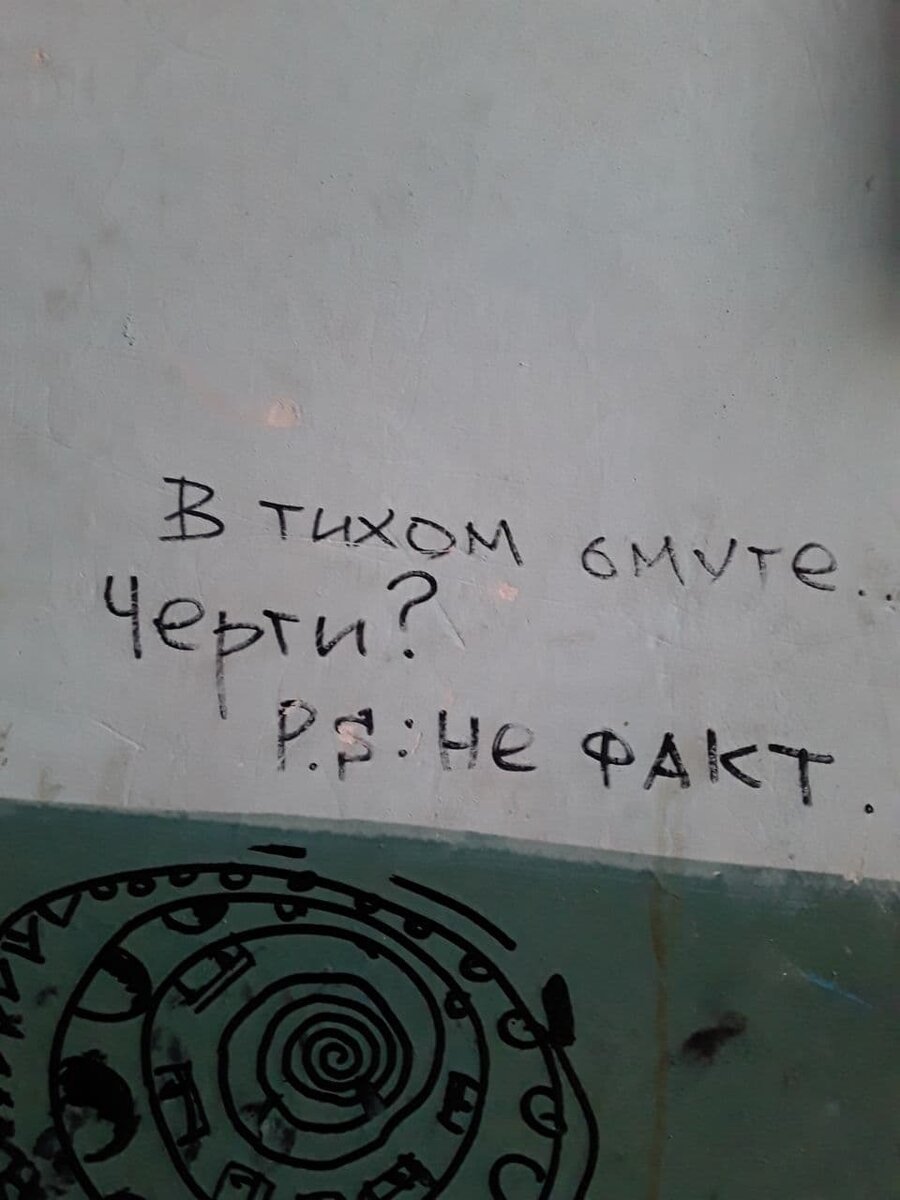 В тихом омуте..
Черти?
P.S: Не ФАКТ.